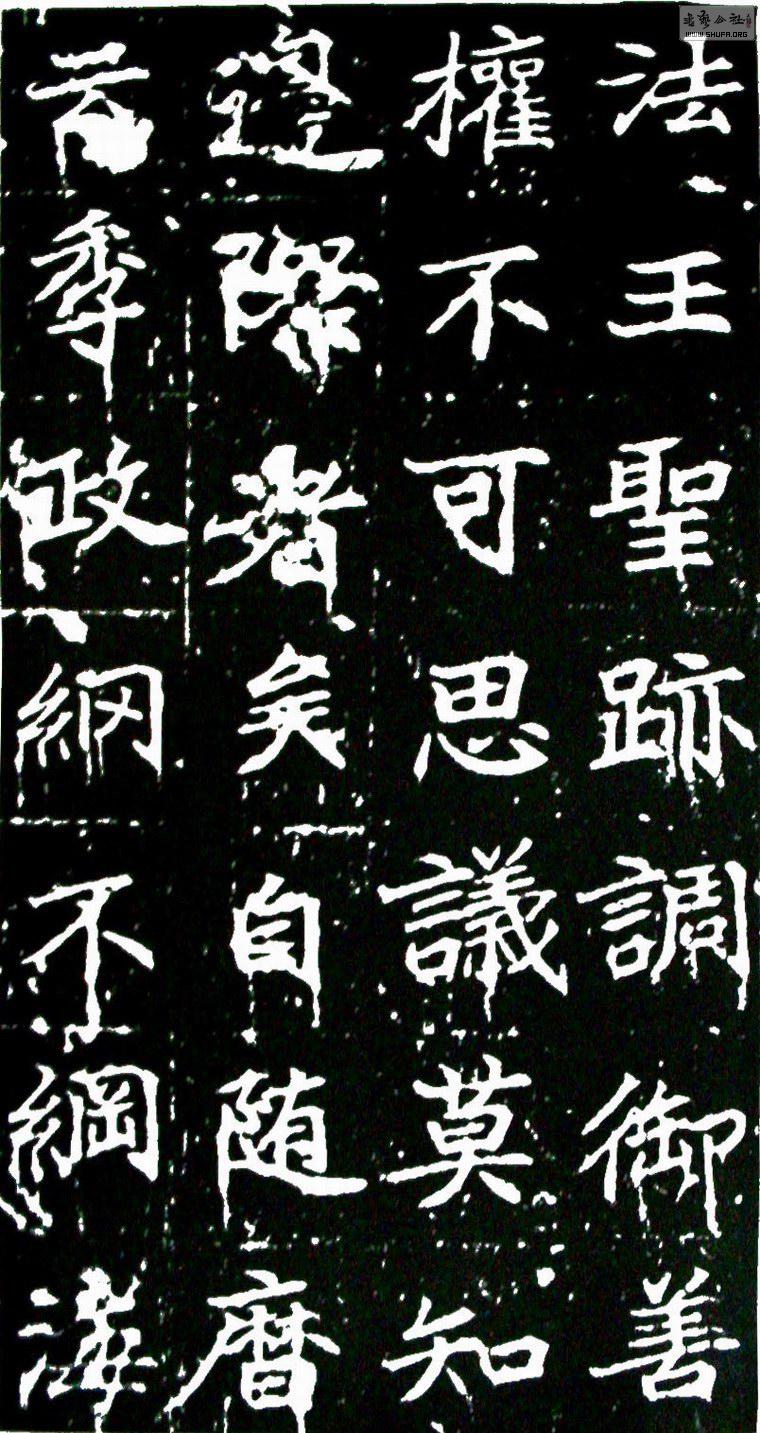 法王聖跡調御善
權不可思議莫知
邊際者矣自随曆
季政網不綱海
WWW.SHUFA.ORG